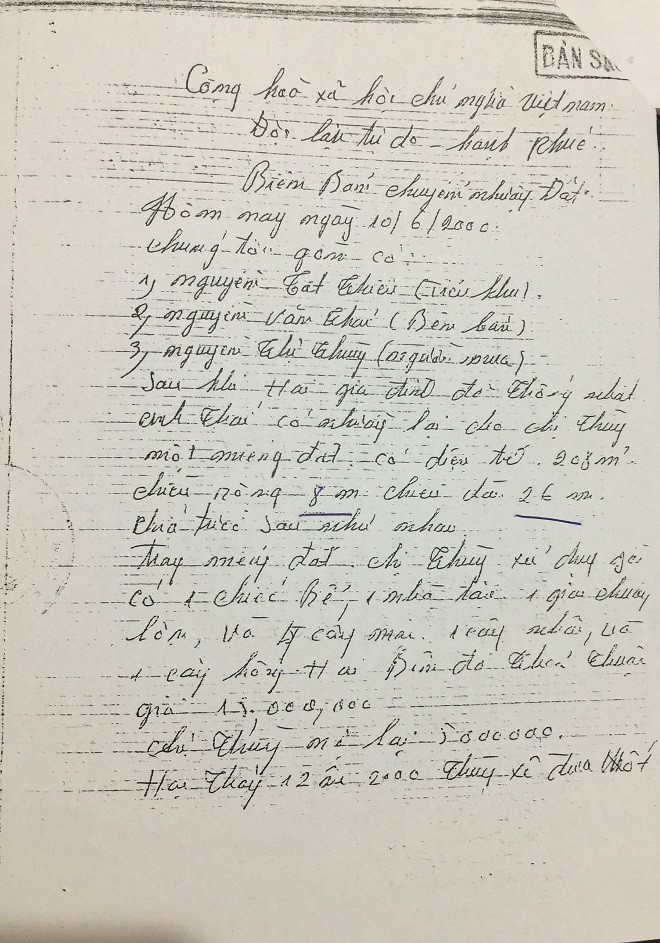 BẢN SA
Cộng hoà xã hội chủ nghĩa việt nam
Độc lập tự do - hạnh phúc
Biên Bản chuyển nhượng Đất
Hôm nay ngày 10/6/2000
chúng tôi gồm có:
1, nguyễn Tất (Tiểu khu).
2, nguyễn văn thái (Bên bán)
3, nguyễn Thị Thuỳ (người mua)
Sau khi Hai gia đình đã thống nhất
anh Thái có nhượng lại cho chị Thuỳ
một miếng đất có diện 208m²
chiều rộng 8m chiều dài 26m.
phía trước sau như nhau
miếng đất chị Thuỳ sử
có 1 chiếc Bể, 1 nhà 1 gian chuồng
lợn, và 4 cây mai 1 cây nhãn, và
1 cây hồng Hai Bên đã thoả thuận
giá 15.000,000
chị Thuỳ nợ lại 5000000.
12 2000 Thuỳ đưa